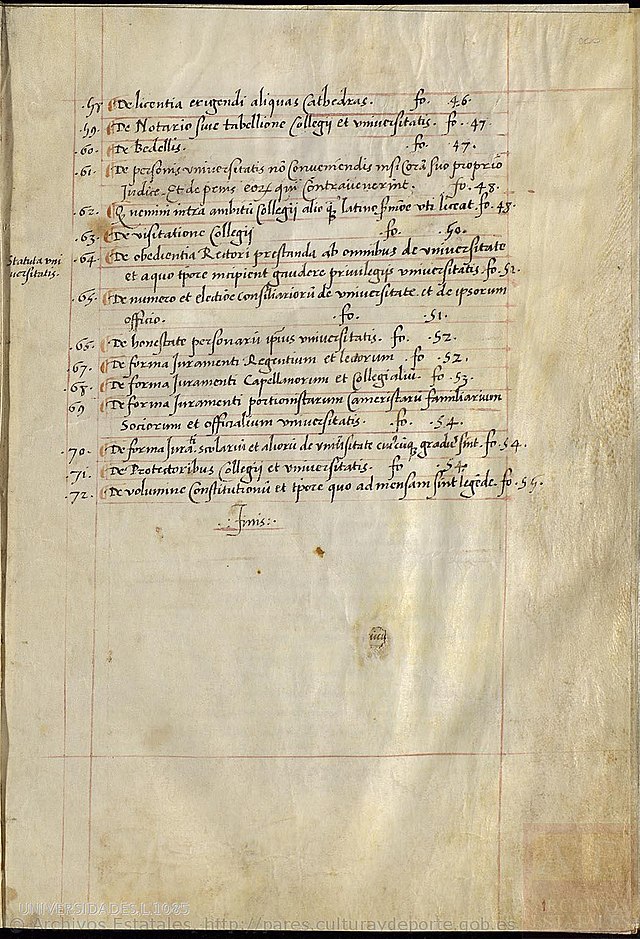 .58. De licentia erigendi aliquas Cathedras. fo. 46.
.59. De Notario siue tabellione Collegij et vniuersitatis. fo. 47.
.60. De Bedellis. fo. 47.
.61. De personis vniuersitatis nō Conueniendis nisi Corā suo proprio
Iudice. Et de penis eorȝ qui Contrauenerint. fo. 48.
.62. Quenim intra ambitū Collegij alio latino sermōe vti liceat. fo. 48.
.63. De visitatione Collegij fo. .50.
Statuta vni
uersitatis.
.64. De obedientia Rectori prestanda ab omnibus de vniuersitate
et a quo tpore incipient gaudere priuilegijs vniuersitatis. fo. 51.
.65. De numero et electiōe Consiliariorū de vniuersitate. et de ipsorum
officio. fo. .51.
.66. De honestate personarū ipsius vniuersitatis. fo. .52.
.67. De forma Iuramenti Regentium et lectorum. fo .52.
.68. De forma Iuramenti Capellanorum et Collegialiū. fo .53.
69. De forma Iuramenti portionistarum Cameristarū familiarium
Sociorum et officialium vniuersitatis. .fo. .54.
.70. De forma Iurati scolariū et aliorū de vniūsitate cuiuscūq gradus sint. fo. 54.
.71. De Protectoribus Collegij et vniuersitatis. fo .54.
.72. De volumine Constitutionū et tpore quo ad mensam sint legēde. fo. .55.
.:Finis:.
UNIVERSIDADES,L.1085
© Archivos Estatales, http://pares.culturaydeporte.gob.es